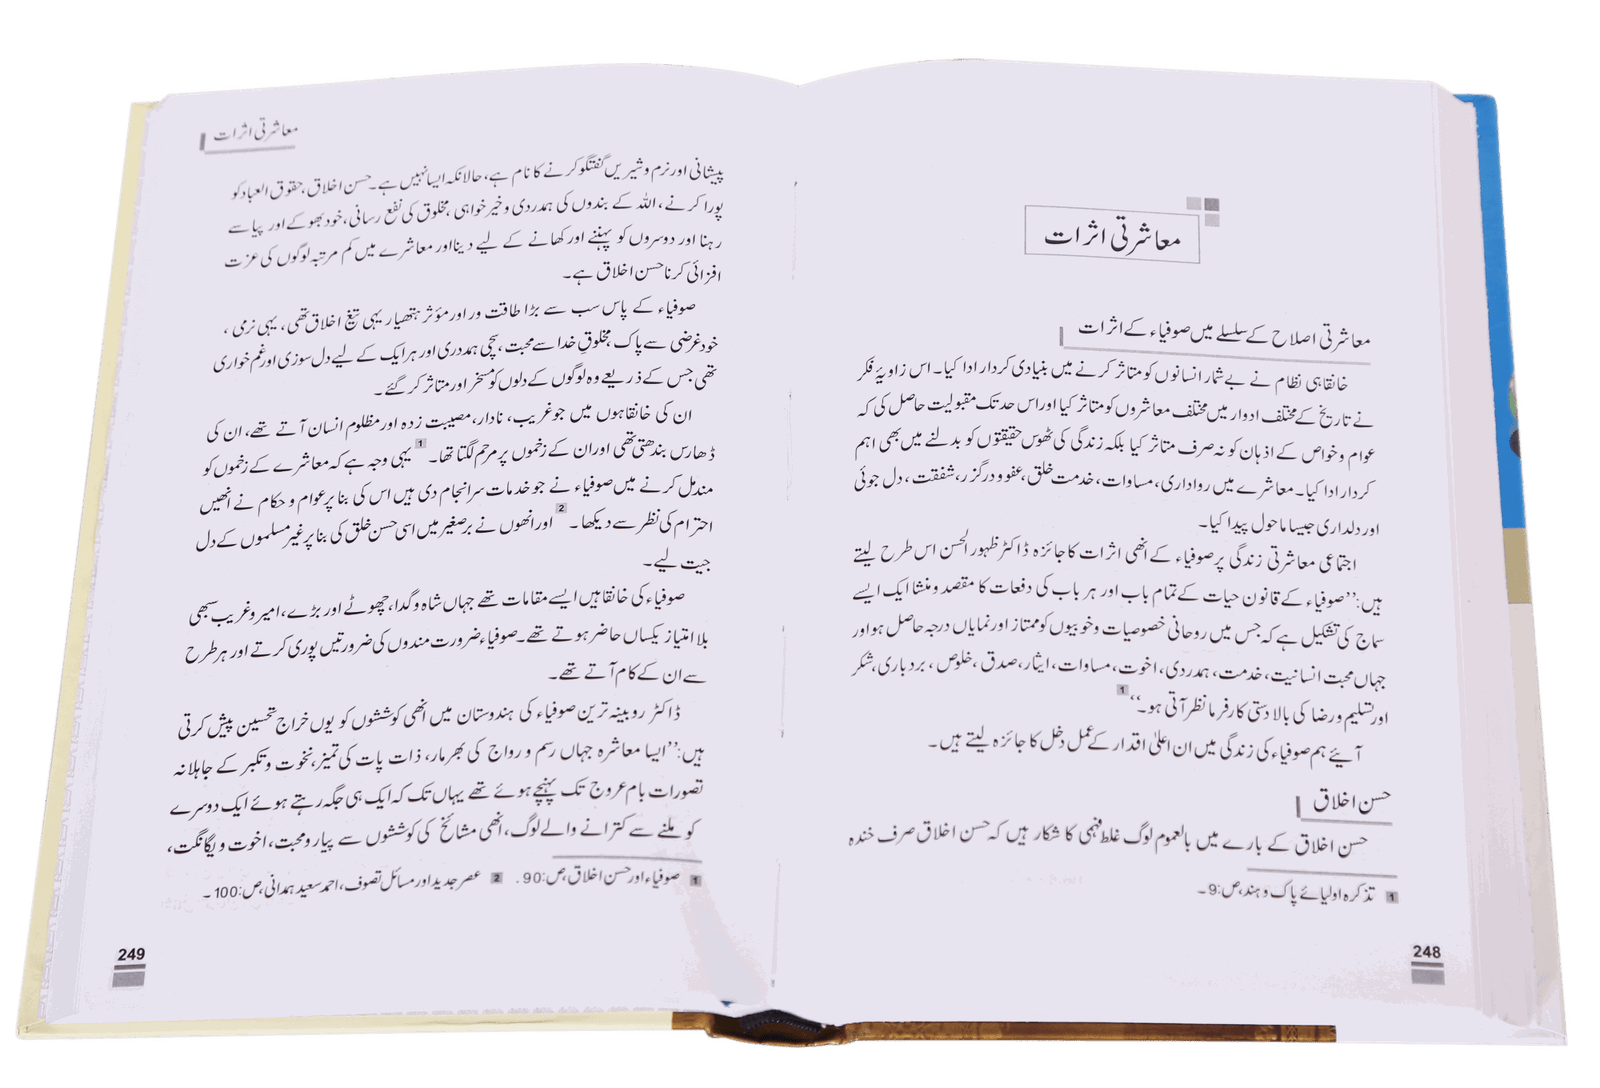 معاشرتی اثرات
معاشرتی اصلاح کے سلسلے میں صوفیاء کے اثرات
خانقاہی نظام نے بے شمار انسانوں کو متاثر کرنے میں بنیادی کردار ادا کیا۔ اس زاویۂ فکر
نے تاریخ کے مختلف ادوار میں مختلف معاشروں کو متاثر کیا اور اس حد تک مقبولیت حاصل کی کہ
عوام و خواص کے اذہان کو نہ صرف متاثر کیا بلکہ زندگی کی ٹھوس حقیقتوں کو بدلنے میں بھی اہم
کردار ادا کیا۔ معاشرے میں رواداری، مساوات، خدمت خلق، عفو و درگزر، شفقت، دل جوئی
اور دلداری جیسا ماحول پیدا کیا۔
اجتماعی معاشرتی زندگی پر صوفیاء کے انھی اثرات کا جائزہ ڈاکٹر ظہور الحسن اس طرح لیتے
ہیں: ’’صوفیاء کے قانون حیات کے تمام باب اور ہر باب کی دفعات کا مقصد و منشا ایک ایسے
سماج کی تشکیل ہے کہ جس میں روحانی خصوصیات و خوبیوں کو ممتاز اور نمایاں درجہ حاصل ہو اور
جہاں محبت انسانیت، خدمت، ہمدردی، اخوت، مساوات، ایثار، صدق، خلوص، بردباری، شکر
اور تسلیم و رضا کی بالا دستی کارفرما نظر آتی ہو۔‘‘ 1
آئیے ہم صوفیاء کی زندگی میں ان اعلیٰ اقدار کے عمل دخل کا جائزہ لیتے ہیں۔
حسن اخلاق
حسن اخلاق کے بارے میں بالعموم لوگ غلط فہمی کا شکار ہیں کہ حسن اخلاق صرف خندہ
1 تذکرہ اولیائے پاک و ہند، ص:9۔
248
معاشرتی اثرات
پیشانی اور نرم و شیریں گفتگو کرنے کا نام ہے، حالانکہ ایسا نہیں ہے۔ حسن اخلاق، حقوق العباد کو
پورا کرنے، اللہ کے بندوں کی ہمدردی و خیر خواہی، مخلوق کی نفع رسانی، خود بھوکے اور پیاسے
رہنا اور دوسروں کو پہننے اور کھانے کے لیے دینا اور معاشرے میں کم مرتبہ لوگوں کی عزت
افزائی کرنا حسن اخلاق ہے۔
صوفیاء کے پاس سب سے بڑا طاقت ور اور مؤثر ہتھیار یہی تیغِ اخلاق تھی، یہی نرمی،
خود غرضی سے پاک، مخلوقِ خدا سے محبت، سچی ہمدردی اور ہر ایک کے لیے دل سوزی اور غم خواری
تھی جس کے ذریعے وہ لوگوں کے دلوں کو مسخر اور متاثر کر گئے۔
ان کی خانقاہوں میں جو غریب، نادار، مصیبت زدہ اور مظلوم انسان آتے تھے، ان کی
ڈھارس بندھتی تھی اور ان کے زخموں پر مرہم لگتا تھا۔ 1 یہی وجہ ہے کہ معاشرے کے زخموں کو
مندمل کرنے میں صوفیاء نے جو خدمات سرانجام دی ہیں اس کی بنا پر عوام و حکام نے انھیں
احترام کی نظر سے دیکھا۔ 2 اور انھوں نے برصغیر میں اسی حسن خلق کی بنا پر غیر مسلموں کے دل
جیت لیے۔
صوفیاء کی خانقاہیں ایسے مقامات تھے جہاں شاہ و گدا، چھوٹے اور بڑے، امیر و غریب سبھی
بلا امتیاز یکساں حاضر ہوتے تھے۔ صوفیاء ضرورت مندوں کی ضرورتیں پوری کرتے اور ہر طرح
سے ان کے کام آتے تھے۔
ڈاکٹر روبینہ ترین صوفیاء کی ہندوستان میں انھی کوششوں کو یوں خراج تحسین پیش کرتی
ہیں: ’’ایسا معاشرہ جہاں رسم و رواج کی بھرمار، ذات پات کی تمیز، نخوت و تکبر کے جاہلانہ
تصورات بام عروج تک پہنچے ہوئے تھے یہاں تک کہ ایک ہی جگہ رہتے ہوئے ایک دوسرے
کو ملنے سے کترانے والے لوگ، انھی مشائخ کی کوششوں سے پیار و محبت، اخوت و یگانگت،
1 صوفیاء اور حسن اخلاق، ص:90. 2 عصر جدید اور مسائل تصوف، احمد سعید ہمدانی، ص:100۔
249